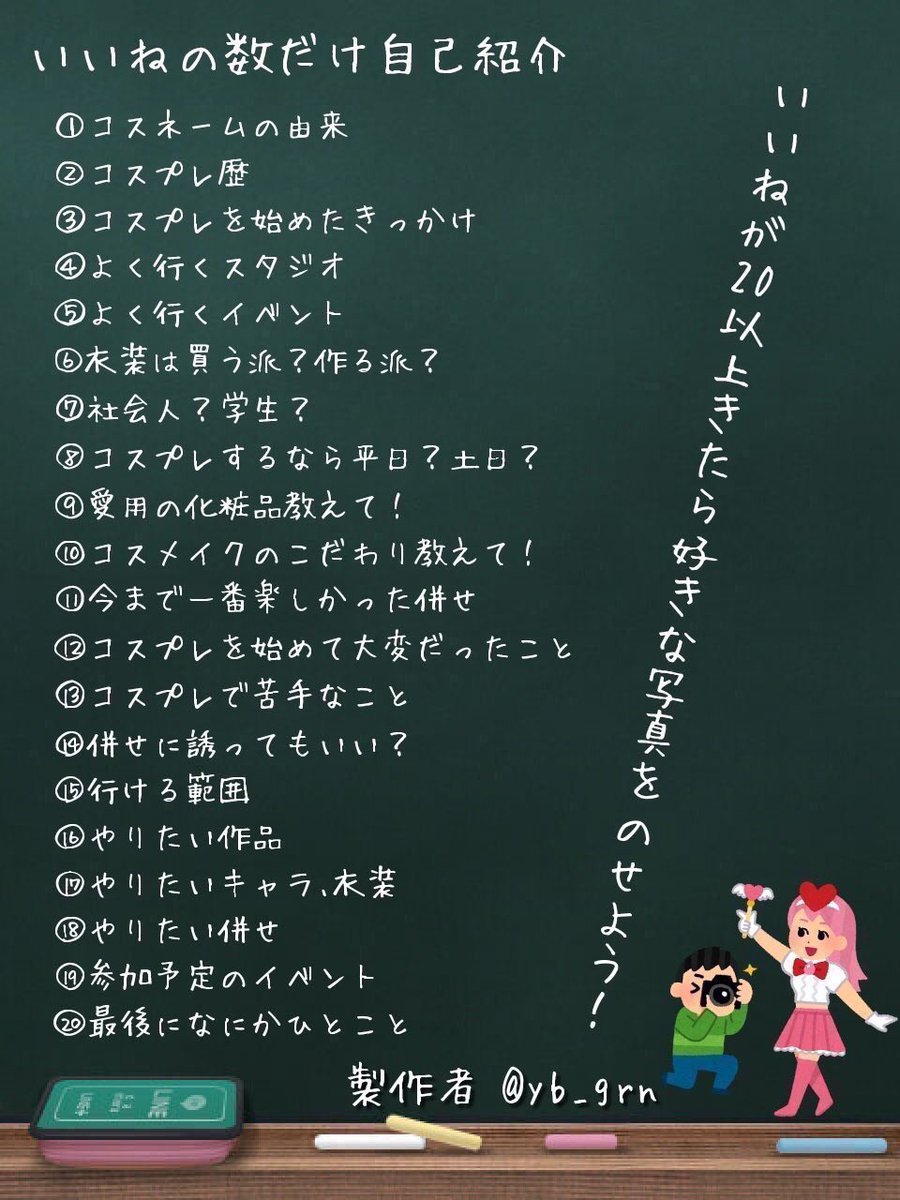 いいねの数だけ自己紹介
①コスネームの由来
②コスプレ歴
③コスプレを始めたきっかけ
④よく行くスタジオ
⑤よく行くイベント
⑥衣装は買う派？作る派？
⑦社会人？学生？
⑧コスプレするなら平日？土日？
⑨愛用の化粧品教えて！
⑩コスメイクのこだわり教えて！
⑪今まで一番楽しかった併せ
⑫コスプレを始めて大変だったこと
⑬コスプレで苦手なこと
⑭併せに誘ってもいい？
⑮行ける範囲
⑯やりたい作品
⑰やりたいキャラ、衣装
⑱やりたい併せ
⑲参加予定のイベント
⑳最後になにかひとこと
いいねが20以上きたら好きな写真をのせよう！
製作者 @yb_grn